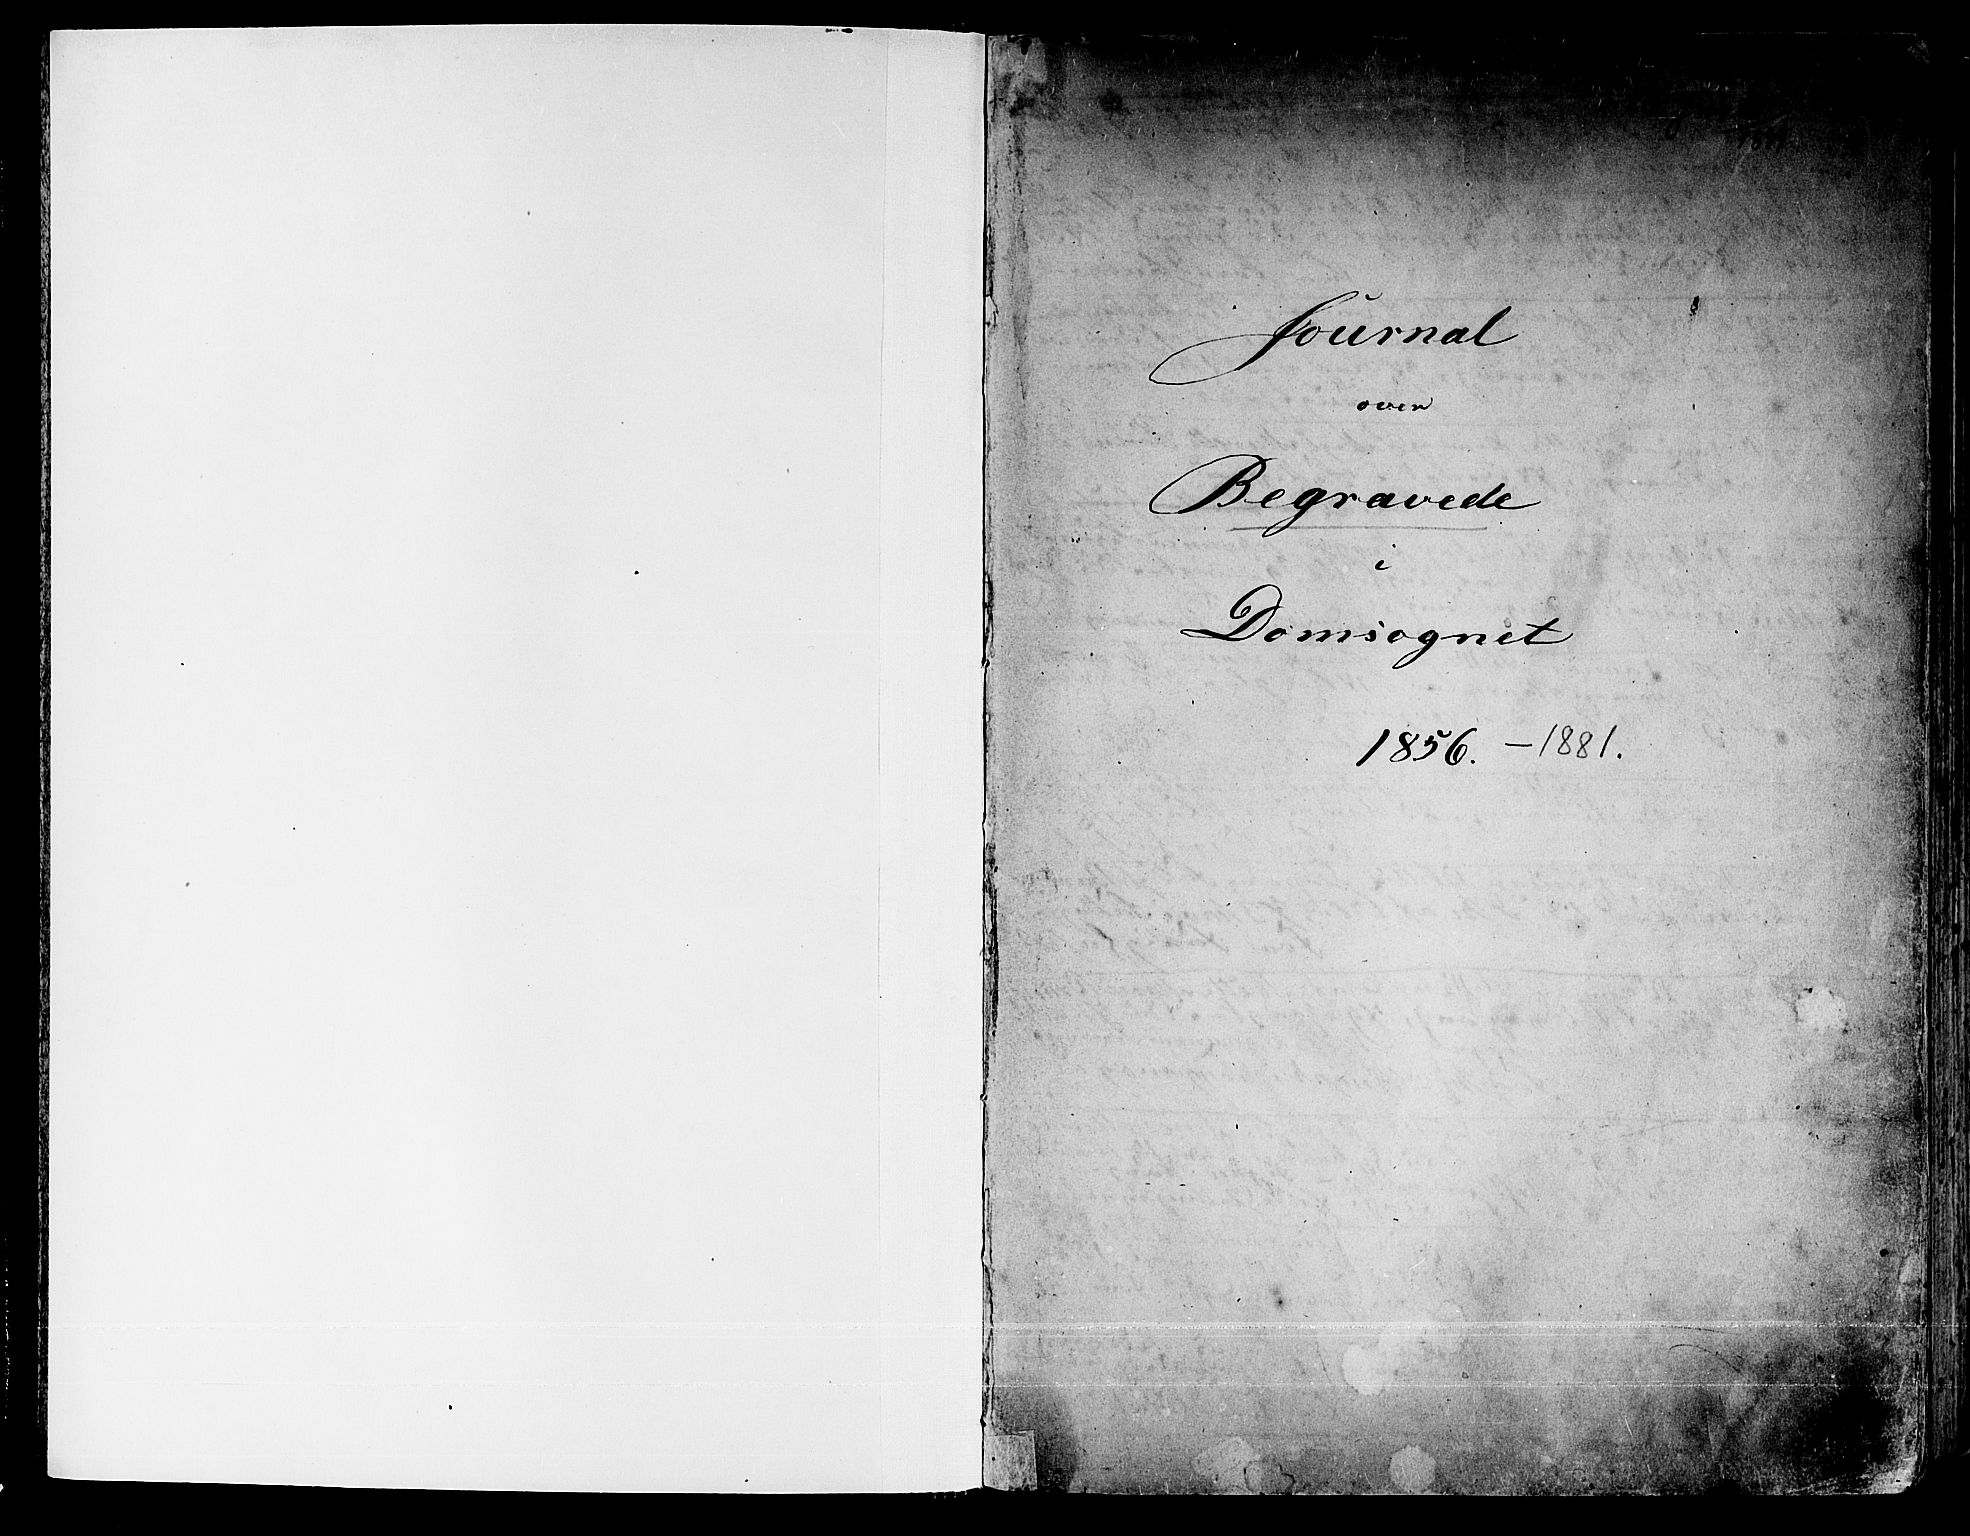 Journal
over
Begravede
i
Domsognet
1856. – 1881.